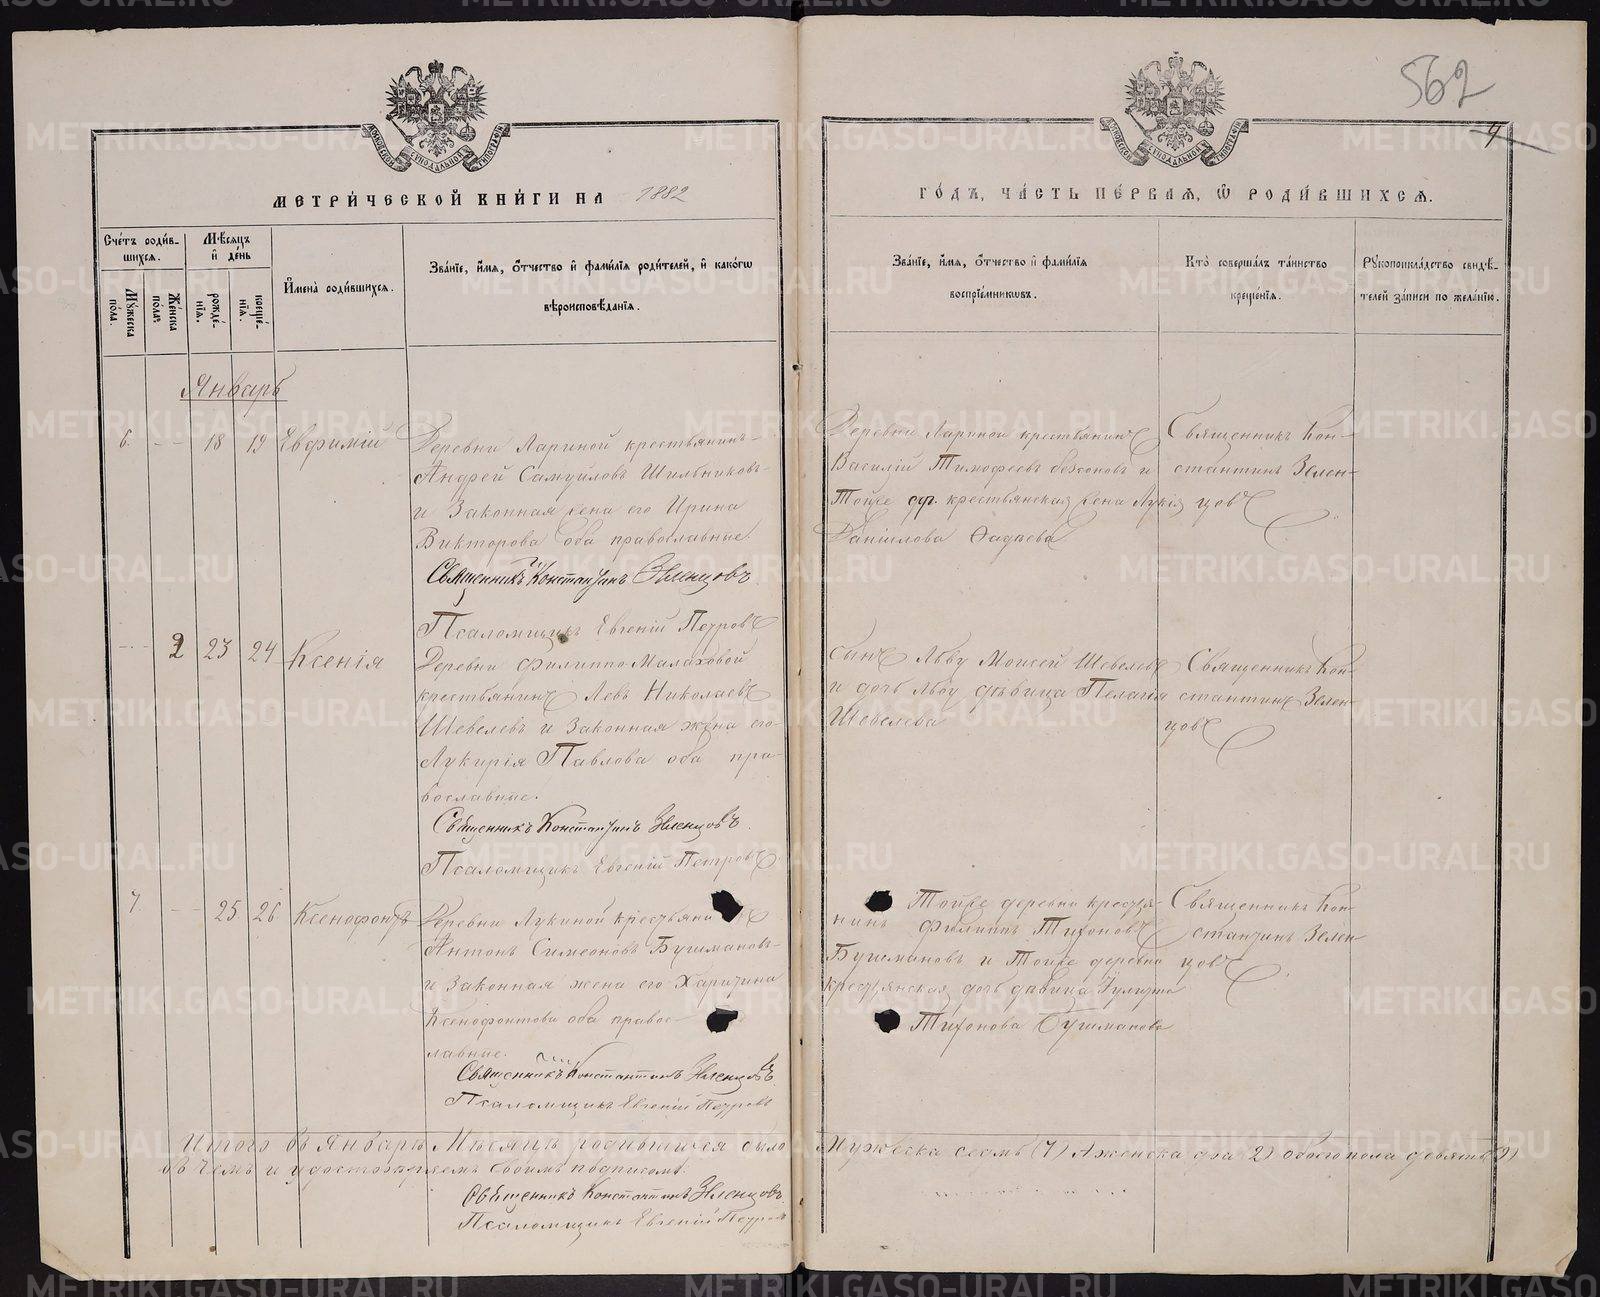 562
4
МОСКОВСКОЙ СѴНОДАЛЬНОЙ ТИПОГРАФІИ
МОСКОВСКОЙ СѴНОДАЛЬНОЙ ТИПОГРАФІИ
МЕТРИ́ЧЕСКОЙ КНИ́ГИ НА 1882
ГО́ДЪ, ЧА́СТЬ ПЕ́РВАѦ, Ѿ РОДИ́ВШИХСѦ.
Сче́тъ роди́вшихсѧ.
Мꙋ́жеска по́ла.
Же́нска пола̀.
Мѣ́сѧцъ и҆ де́нь
рожде́нїѧ.
креще́нїѧ.
И҆мена̀ роди́вшихсѧ.
Зва́нїе, и҆́мѧ, ѻ҆́тчество и҆ фами́лїѧ роди́телей, и҆ како́гѡ
вѣроисповѣ́данїѧ.
Зва́нїе, и҆́мѧ, ѻ҆́тчество и҆ фами́лїѧ
воспрїе́мникѡвъ.
Кто̀ соверша́лъ та́инство
креще́нїѧ.
Рꙋкоприкла́дство свидѣ́-
телей за́писи по жела́нїю.
Январь
6. — — 18 19 Евфимій
Деревни Лариной крестьянинъ
Андрей Самуиловъ Шильниковъ
и Законная жена его Ирина
Викторова оба православные.
Священникъ Константинъ Зеленцовъ
Псаломщикъ Евгеній Петровъ
Деревни Лариной крестьянинъ
Василій Тимофеевъ и
Тойже др. крестьянская жена Лукія
Даниилова Фадѣева
Священникъ Кон-
стантинъ Зелен-
цовъ
— — 2 23 24 Ксенія
Деревни Филиппо Малаховой
крестьянинъ Левъ Николаевъ
Шевелевъ и Законная жена его
Лукирія Павлова оба пра-
вославные.
Священникъ Константинъ Зеленцовъ
Псаломщикъ Евгеній Петровъ
Сынъ Льву Моисей Шевелевъ
и дочь Льву дѣвица Пелагія
Шевелева
Священникъ Кон-
стантинъ Зелен-
цовъ
7. — — 25 26 Ксенофонтъ
Деревни Лукиной крестьянинъ
Антонъ Симеоновъ Бушмановъ
и Законная жена его Харитина
Ксенофонтова оба право-
славные.
Священникъ Константинъ Зеленцовъ
Псаломщикъ Евгеній Петровъ
Тойже деревни крестья-
нинъ Филиппъ Тихоновъ
Бушмановъ и Тойже деревни
крестьянская дочь дѣвица
Тихонова Бушманова
Священникъ Кон-
стантинъ Зелен-
цовъ
Итого въ Январѣ Мѣсяцѣ родившихся было Мужеска семь (7) а женска два (2) обоего пола девять (9)
въ чемъ и удостовѣряемъ своимъ подписомъ.
Священникъ Константинъ Зеленцовъ
Псаломщикъ Евгеній Петровъ
METRIKI.GASO-URAL.RU